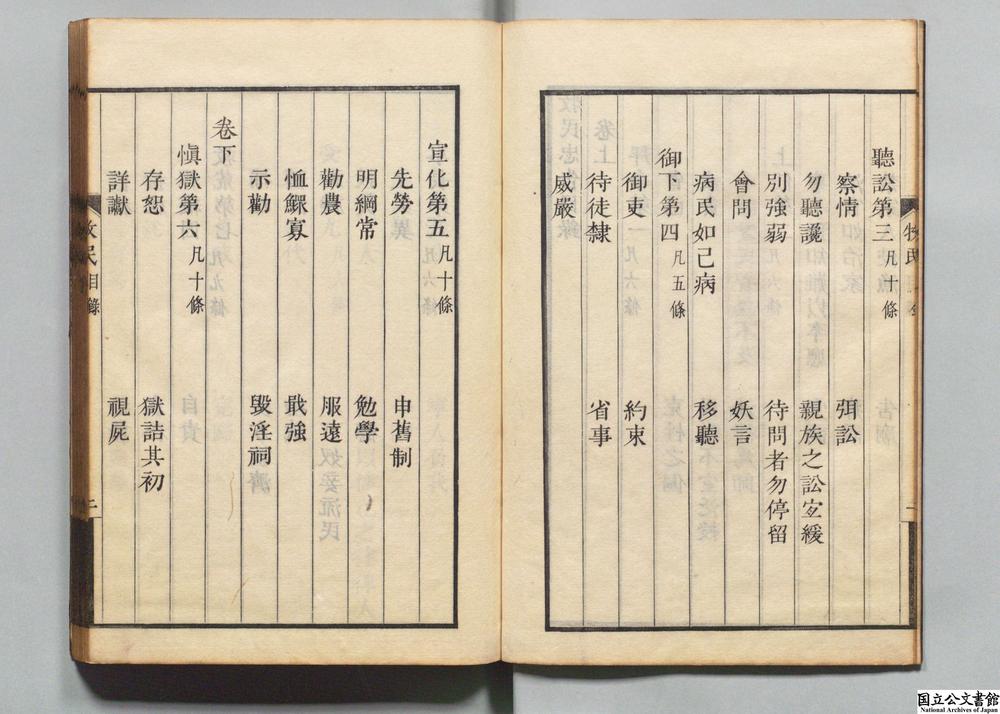 聽訟第三 凡十條
察情 弭訟
勿聽讒 親族之訟宜緩
別強弱 待問者勿停留
會問 妖言
病民如己病 移聽
御下第四 凡五條
御吏 約束
待徒隸 省事
威嚴
宣化第五 凡十條
先勞 申舊制
明綱常 勉學
勸農 服遠
恤鰥寡 戢強
示勸 毀淫祠
卷下
愼獄第六 凡十條
存恕 獄詰其初
詳讞 視屍
牧民 目錄
二
国立公文書館
National Archives of Japan